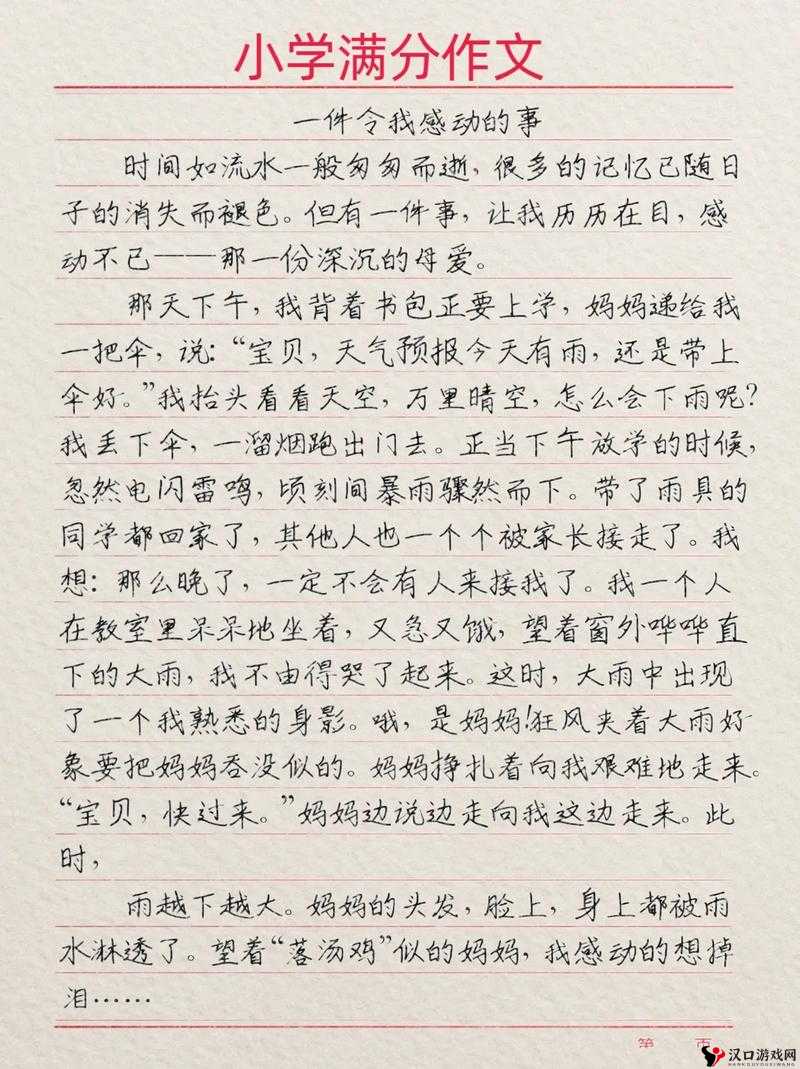 小学满分作文
一件令我感动的事
时间如流水一般匆匆而逝，很多的记忆已随日
子的消失而褪色。但有一件事，让我历历在目，感
动不已——那一份深沉的母爱。
那天下午，我背着书包正要上学，妈妈递给我
一把伞，说：“宝贝，天气预报今天有雨，还是带上
伞好。”我抬头看看天空，万里晴空，怎么会下雨呢？
我丢下伞，一溜烟跑出门去。正当下午放学的时候，
忽然电闪雷鸣，顷刻间暴雨骤然而下。带了雨具的
同学都回家了，其他人也一个个被家长接走了。我
想：那么晚了，一定不会有人来接我了。我一个人
在教室里呆呆地坐着，又急又饿，望着窗外哗哗直
下的大雨，我不由得哭了起来。这时，大雨中出现
了一个我熟悉的身影。哦，是妈妈！狂风夹着大雨好
象要把妈妈吞没似的。妈妈挣扎着向我艰难地走来。
“宝贝，快过来。”妈妈边说边走向我这边走来。此
时，
雨越下越大。妈妈的头发，脸上，身上都被雨
水淋透了。望着“落汤鸡”似的妈妈，我感动的想掉
泪……
第 页
汉口游戏网
HANKOUYOUXIWANG